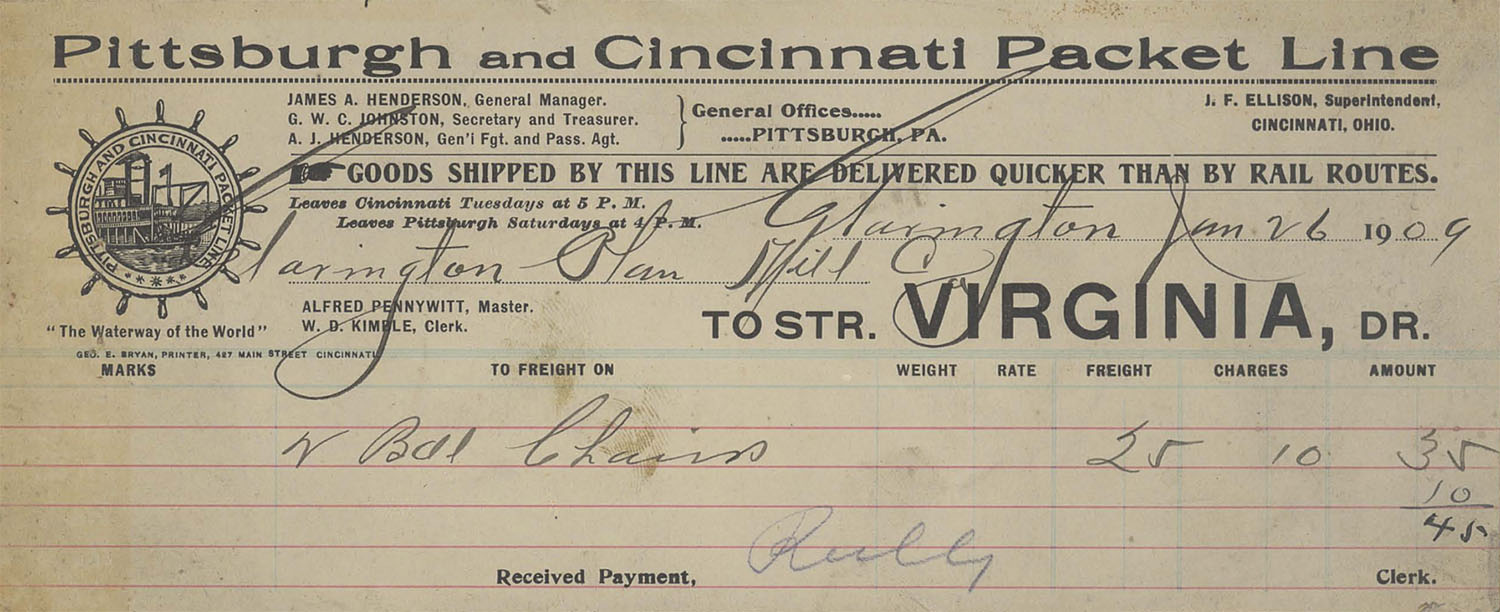 Pittsburgh and Cincinnati Packet Line
JAMES A. HENDERSON, General Manager.
G. W. C. JOHNSTON, Secretary and Treasurer.
A. J. HENDERSON, Gen'l Fgt. and Pass. Agt.
General Offices.....
.....PITTSBURGH, PA.
J. F. ELLISON, Superintendent,
CINCINNATI, OHIO.
PITTSBURGH AND CINCINNATI PACKET LINE
GOODS SHIPPED BY THIS LINE ARE DELIVERED QUICKER THAN BY RAIL ROUTES.
Leaves Cincinnati Tuesdays at 5 P. M.
Leaves Pittsburgh Saturdays at 4 P. M.
Clarington Jan 26 1909
Clarington Plan Mill Co
ALFRED PENNYWITT, Master.
W. D. KIMBLE, Clerk.
TO STR. VIRGINIA, DR.
"The Waterway of the World"
GEO. E. BRYAN, PRINTER, 427 MAIN STREET CINCINNATI
MARKS TO FREIGHT ON WEIGHT RATE FREIGHT CHARGES AMOUNT
2 Bdl Chairs 25 10 35
10
45
Received Payment, Reilly Clerk.